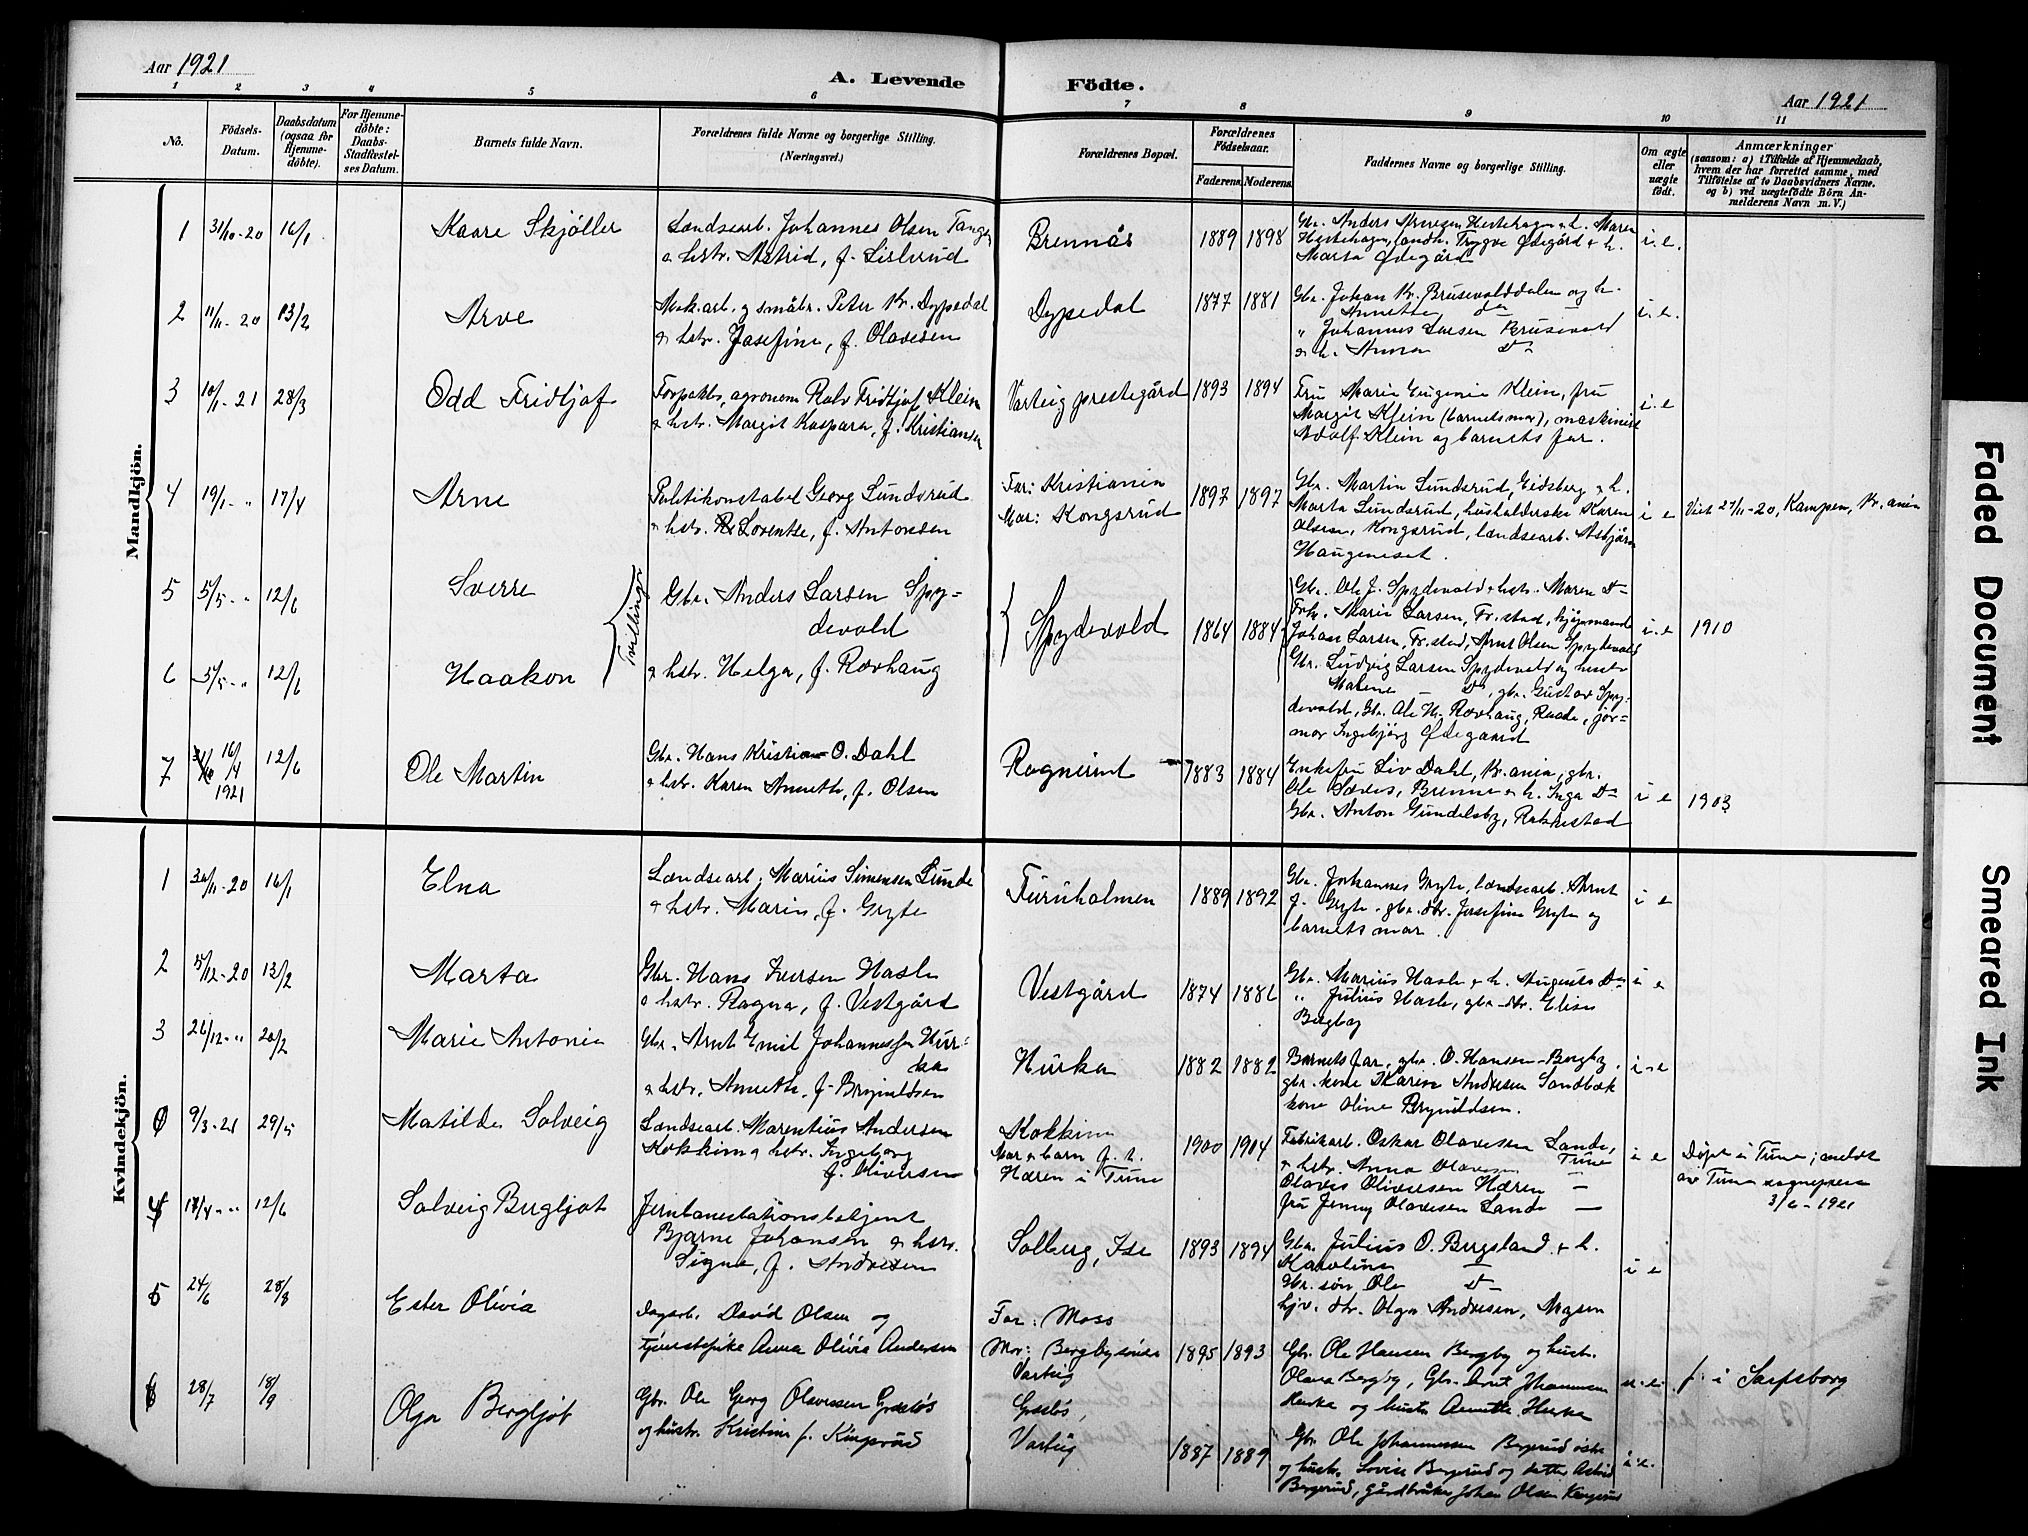 Aar 1921
A. Levende
Födte.
Aar 1921
1 2 3 4 5 6 7 8 9 10 11
No.
Födsels-Datum.
Daabsdatum (ogsaa for Hjemme-döbte).
For Hjemme-döbte: Daabs-Stadfæstel-ses Datum.
Barnets fulde Navn.
Forældrenes fulde Navne og borgerlige Stilling. (Næringsvei.)
Forældrenes Bopæl.
Forældrenes Födselsaar.
Faderens. Moderens.
Faddernes Navne og borgerlige Stilling.
Om ægte eller uægte födt.
Anmærkninger
(saasom: a) i Tilfælde af Hjemmedaab, hvem der har forrettet samme, med Tilföielse af to Daabsvidners Navne, og b) ved uægtefödte Börn An-melderens Navn m. V.)
Mandkjön.
1 31/10-20 16/1 Kaare Skjøller
Landsearb. Johannes Olsen Tangen
o hstr. Astrid, f. Lislerud
Brennås 1889 1898
Gbr. Anders Hestehagen & h. Maren
Hestehagen, landh. Trygve Ødegård & h.
Marta Ødegård
i. e.
2 11/11-20 13/2 Arve
Murarb. og småbr. Peter Kr. Dypedal
og hstr. Josefine, f. Olavesen
Dypedal 1877 1881
Gbr. Johan Kr. Brusevolddalen og h.
Annette do
" Johannes Larsen Brusevold
og h. Anna Do
i. e.
3 10/1-21 28/3 Odd Fridtjof
Forpakter, agronom Rolv Fridtjof Klein
o hstr. Margit Kaspara, f. Kristiansen
Varteig prestegård 1893 1894
Fru Marie Eugenie Klein, fru
Margit Klein (barnets mor), maskinist
Adolf Klein og barnets far.
i. e
4 19/1-" 17/4 Arne
Politikonstabel Georg Lundsrud
o hstr. Lorentse, f. Antonsen
Far: Kristiania
Mor: Kongsrud
1897 1897
Gbr. Martin Lundsrud, Eidsberg & h.
Marta Lundsrud, husholderske Karen
Olsen, Kongsrud, landsearb. Asbjørn
Haugeneset.
i e Viet 27/11-20, Kampen, Kr.ania
5 5/5-" 12/6 Sverre
Tvillinger
Gbr. Anders Larsen Spy=
devold
Spydevold 1864 1884
Gbr. Ole J. Spydevold & hstr. Maren Do
Frk. Marie Larsen, Fr.stad, kjøpmand
Johan Larsen, Fr.stad, Arne Olsen Spydevold
i. e 1910
6 5/5-" 12/6 Haakon
o hstr. Helga, f. Rævhaug
Gbr. Ludvig Larsen Spydevold og hustr
Malene Do, gbr. Gustav Spy=
devold, Gbr. Ole H. Rævhaug, Raade, jor=
mor Ingebjørg Ødegaard
7 16/4 1921 12/6 Ole Martin
Gbr. Hans Kristian O. Dahl
o hstr. Karen Annette, f. Olsen
1883 1884
Enkefru Liv Dahl, Kr.ania, gbr.
Ole Brenne & h. Inga Do
Gbr. Anton Gundelsby, Rakkestad
i e 1903
Kvindekjön.
1 30/11-20 16/1 Elna
Landsearb. Marius Simensen Lunde
o hstr. Marie, f. Gryte
Furuholmen 1889 1892
Gbr. Johannes Gryte, landsearb. Arnt
J. Gryte, gbr. dtr. Josefine Gryte og
barnets mor.
i e
2 5/12-20 13/2 Marta
Gbr. Hans Iversen Hasle
o hstr. Ragna, f. Vestgård
Vestgård 1874 1881
Gbr. Marius Hasle & h. Augusta Do
" Julius Hasle, gbr-dtr. Elise
Bergby
i e
3 26/12-" 20/2 Marie Antonie
Gbr. Arnt Emil Johannessen Hur=
ka
o hstr. Annette, f. Brynildsen
Hurka 1882 1882
Barnets far, gbr. O. Hansen-Bergby,
gbr. kone Karen Andresen Sandbæk
kone Oline Brynildsen.
i - e
0 9/3-21 29/5 Matilde Solveig
Landsearb. Marentius Andersen
Kokkim o hstr. Ingeborg
f. Oliversen
Kokkim
Mor & barn f. t.
Næren i Tune
1900 1904
Fabrikarb. Oskar Olavesen Lande,
o hstr. Anna Olavesen Tune
Olaves Oliversen Næren —
fru Jenny Olavesen Lande —
i e
Døpt i Tune; meldt
av Tune sogneprest
3/6-1921
4 17/4-" 12/6 Solveig Bergljot
Jernbanestationsbetjent
Bjarne Johansen o hstr.
Signe, f. Andresen
Solberg, Ise 1893 1894
Gbr. Julius O. Bergsland & h.
Karoline —
Gbr. søn Ole Do
hjv. dtr. Olga Andresen, Mysen
i e
5 24/6 28/8 Ester Olivia
Dagarb. David Olsen og
tjenestepike Anna Olivia Andersen
Far: Moss
Mor: Bergby søndre
Varteig
1895 1893
Gbr. Ole Hansen Bergby og hustr.
Olava Bergby, Gbr. Arnt Johannesen
Hurka og hustr Annette Hurka
u. e. f. i Sarpsborg
6 28/7 18/9 Olga Bergljot
Gbr. Ole Georg Olavesen Grøsløs
og hustr. Kristine f. Kingsrud
Grøsløs,
Varteig
1887 1889
Gbr. Ole Johannessen Bergerud østre
og hustr. Lovise Bergerud og datter Astrid
Bergerud, gårdbruker Johan Olsen Kingsrud
i. e.
Faded Document
Smeared Ink